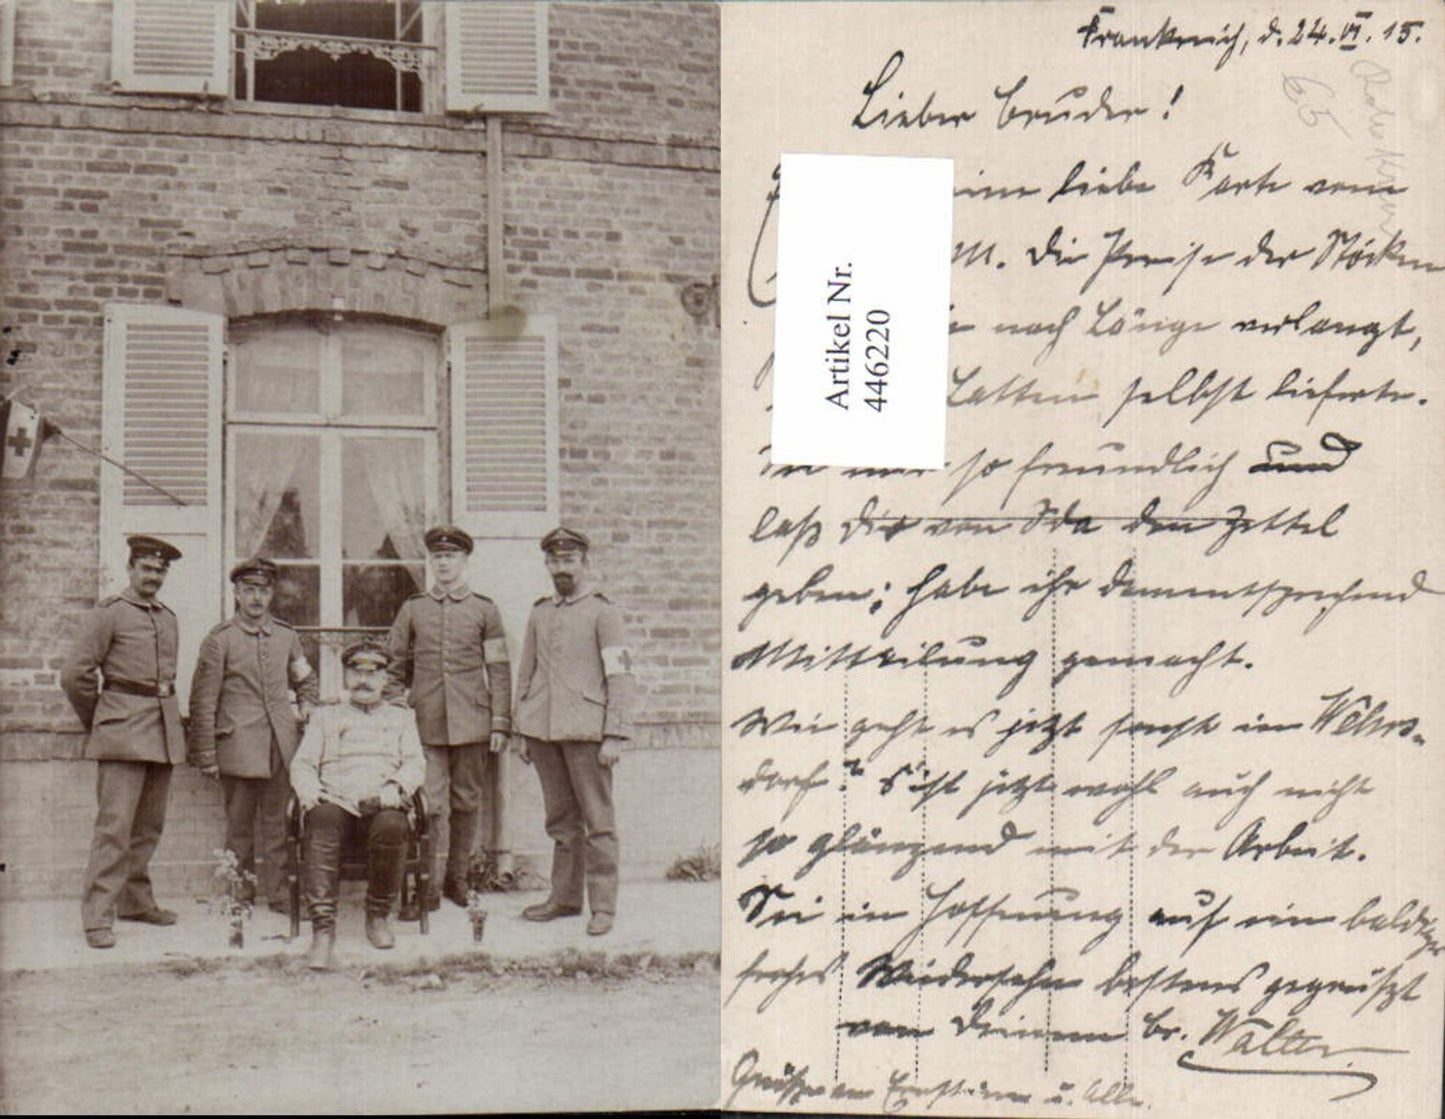 Frankreich, d. 24.VI.15.
Lieber Bruder!
liebe Karte vom
M. Die Preise der Stöcken
nach Länge verlangt,
Latten selbst lieferte.
so freundlich und
laß dir von Ida den Zettel
geben; habe ihr dementsprechend
Mitteilung gemacht.
Wie geht es jetzt sonst in Wehrs-
dorf? S'ist jetzt wohl auch nicht
so glänzend mit der Arbeit.
Sei in Hoffnung auf ein baldiges
frohes Wiedersehn bestens gegrüßt
von Deinem Br. Walter.
Grüße an u. Alle.
Artikel Nr.
446220
65